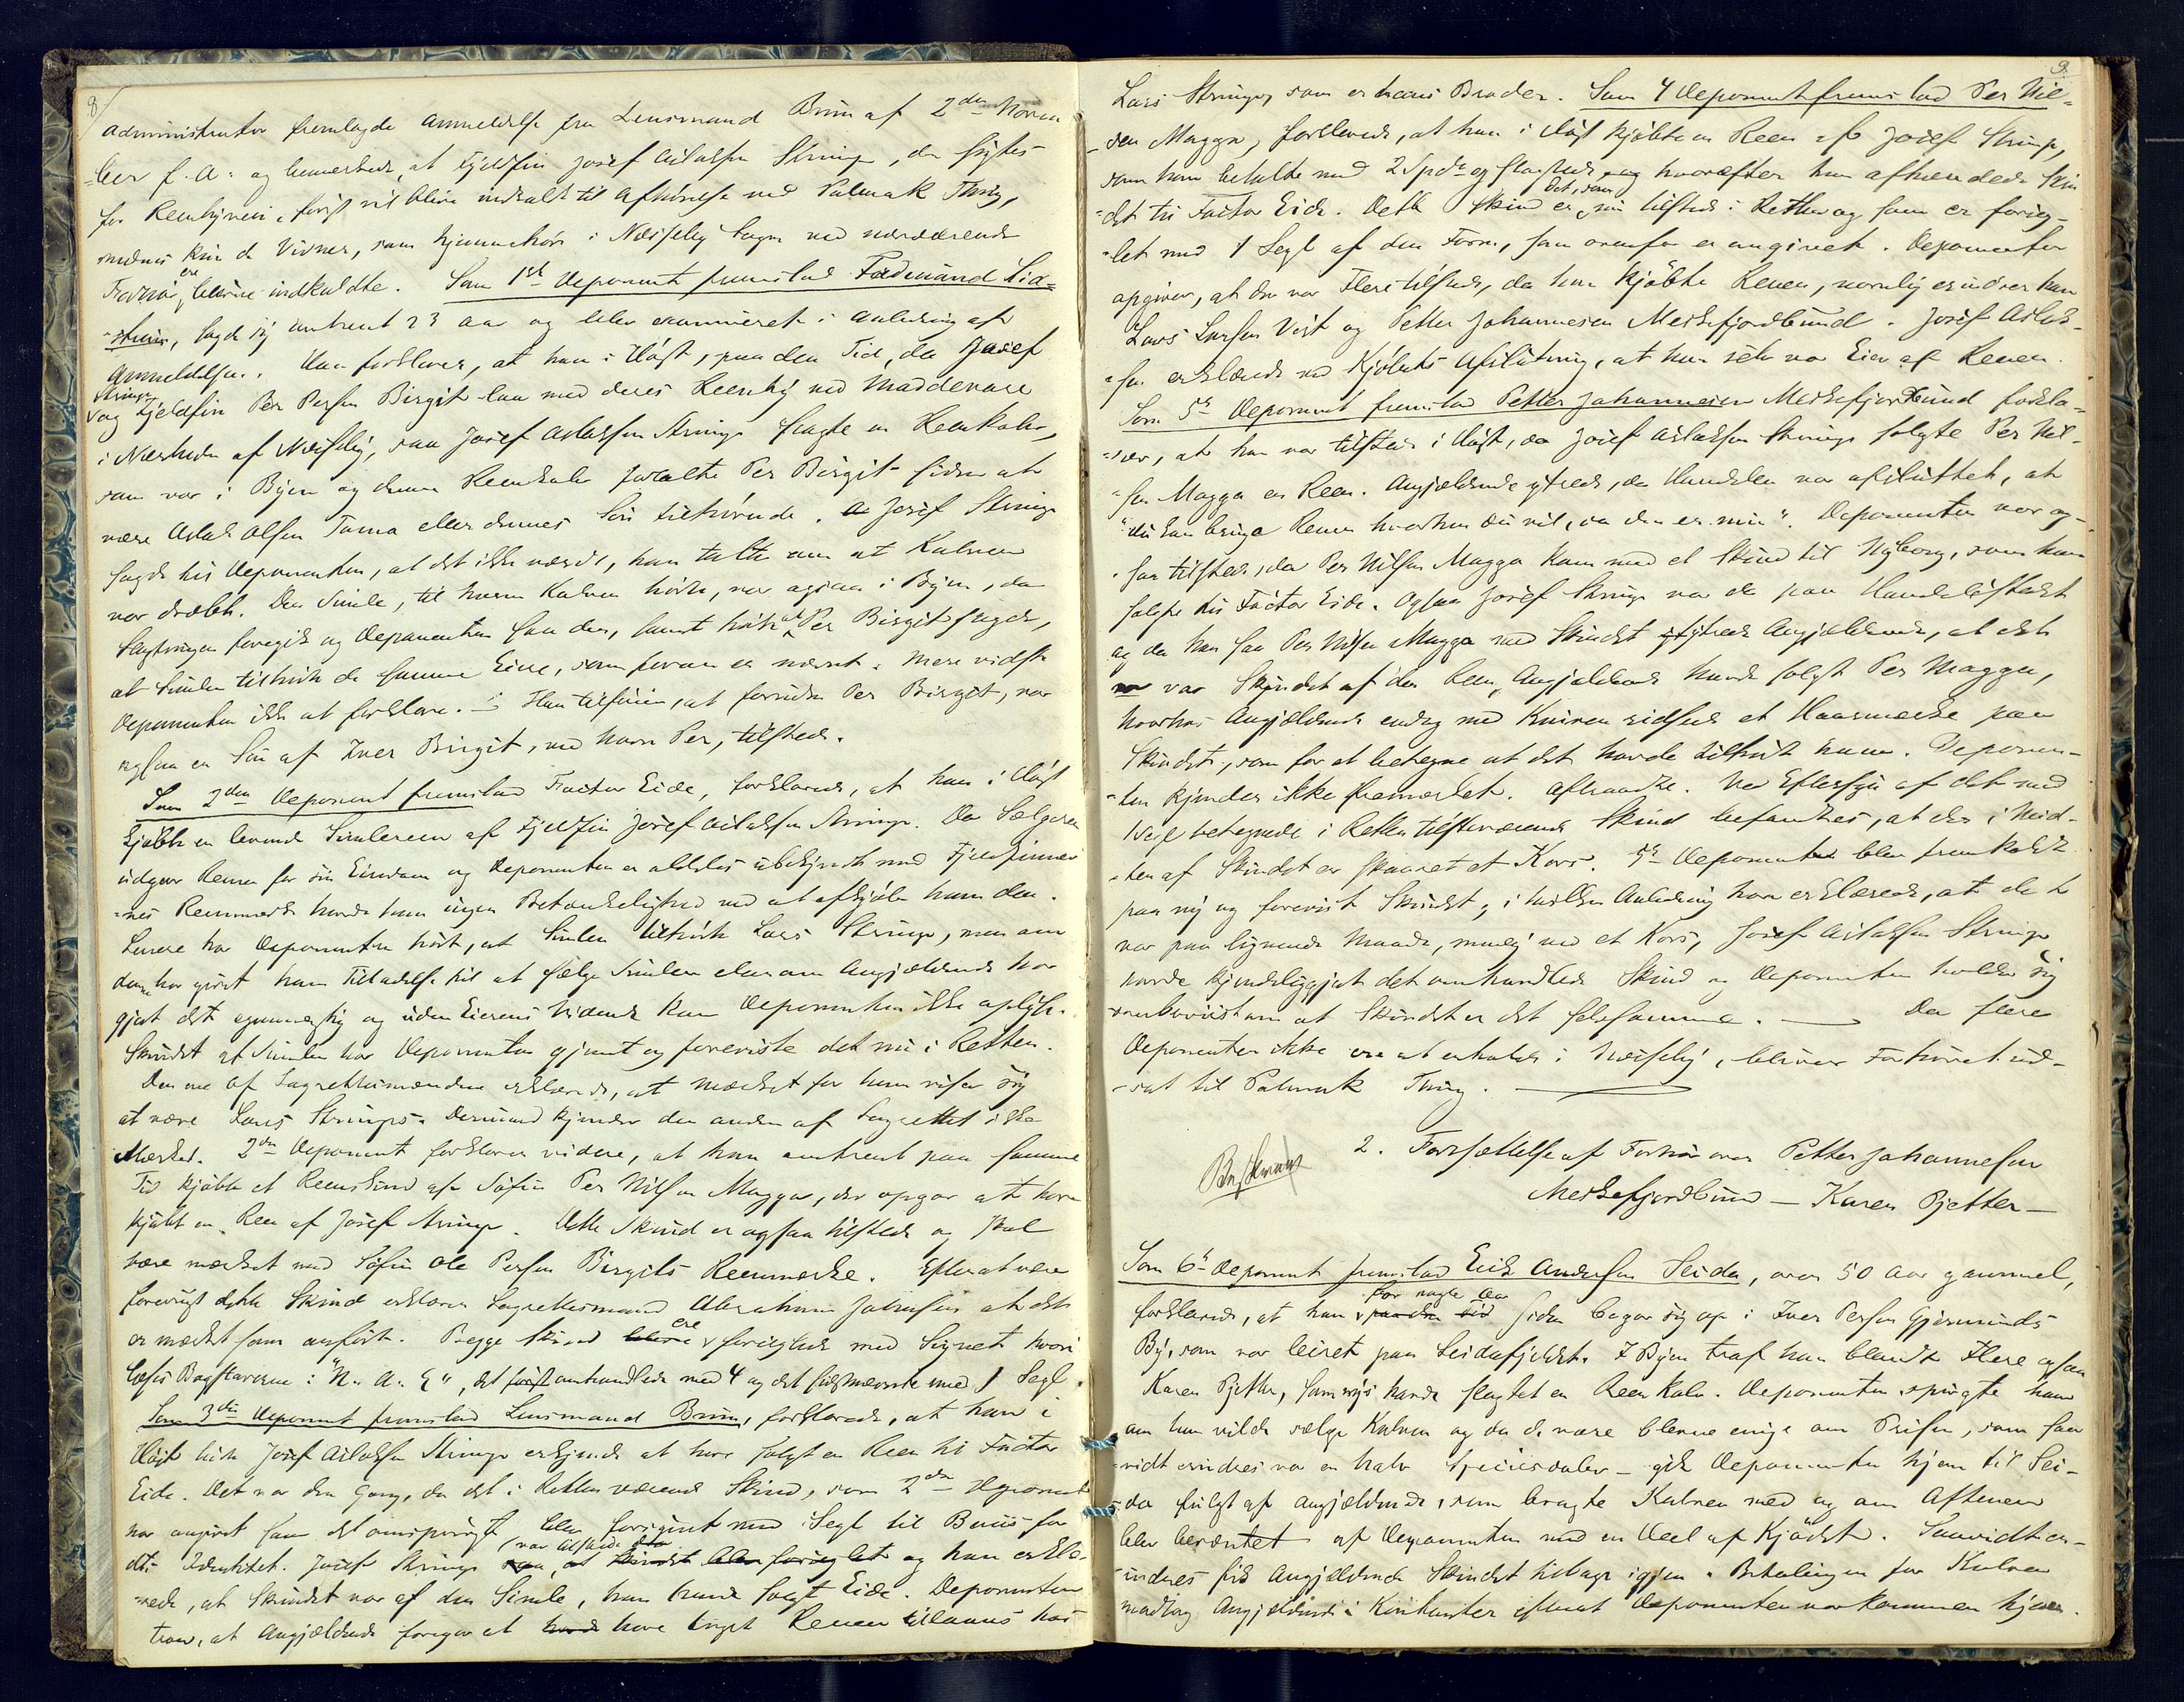 8/
Administrator fremlagde Anmeldelse fra Lensmand Brun af 2den Novem
-ber f. A. og bemærkede, at Fjeldfin Josef Aslaksen Strimp, der sigtes
for Rentyveri, først vil blive indkaldt til Afhørelse ved Polmak Thing,
medens kun de Vidner, som hjemmehøre i Næsseby Sogn ved nærværende
Forhør ere blevne indkaldte. Som 1st Deponent fremstod Ferdinand Six-
-strøm, sagde sig omtrent 23 Aar og blev examineret i Anledning af
Anmeldelsen. Han forklarer, at han i Høst, paa den Tid, da Josef
Strimp
og Fjeldfin Per Persen Birgit laa med deres Reenhj ved Maddevare
i Nærheden af Næsseby, saa Josef Aslaksen Strimp slagte en Reenkalv,
som var i Byen og denne Reenkalv fortalte Per Birgit siden at
være Aslak Olsen Toma eller dennes Søn tilhørende. Josef Strimp
sagde til Deponenten, at det ikke nærede, han talte om at Kalven
var dræbt. Den Simle, til hvem Kalven hørte, var ogsaa i Byen, da
Slagtningen foregik og Deponenten saa den, samt hørte at Per Birgit sagde,
at Simlen tilhørte de samme Eiere, som foran er nævnt. Mere vidste
Deponenten ikke at forklare. – Han tilføier, at foruden Per Birgit, var
ogsaa en Søn af Iver Birgit, ved Navn Per, tilstede.
Som 2den Deponent fremstod Factor Eide, forklarede, at han i Høst
kjøbte en levende Simlereen af Fjeldfin Josef Aslaksen Strimp. Da Sælgeren
udgav Renen for sin Eiendom og Deponenten er aldeles ubekjendt med Fjeldfinner
-nes Reenmærke havde han ingen Betænkelighed ved at afkjøbe ham den.
Senere har Deponenten hørt, at Simlen tilhørte Lars Strimp, men om
denne har givet ham Tilladelse til at sælge Simlen eller om Angjældende har
gjort det egenmægtig og uden Eierens Vidende kan Deponenten ikke oplyse.
Skindet af Simlen har Deponenten gjemt og foreviste det nu i Retten.
Den ene af Lagrettesmændene erklærede, at Mærket for ham viser sig
at være Lars Strimps. Derimod kjender den anden af Lagrettet ikke
Mærket. 2den Deponent forklarer videre, at han omtrent paa samme
Tid kjøbte et Reenskind af Søfin Per Nilsen Magga, der opgav at have
kjøbt en Reen af Josef Strimp. Dette Skind er ogsaa tilstede og skal
være mærket med Søfin Ole Persen Birgits Reenmærke. Efter at være
forevist dette Skind erklærer Lagrettesmand Abraham Johnsen at det
er mærket som anført. Begge Skind ere forseglede med Signet hvori
læses Bogstaverne: "N. A. E", det først omhandlede med 4 og det sidstnævnte med 1 Segl.
Som 3die Deponent fremstod Lensmand Brun, forklarede, at han i
Høst hørte Josef Aslaksen Strimp erkjende at have solgt en Reen til Factor
Eide. Det var den Gang, da det i Retten værende Skind, som 2den Deponent
har angivet som det omspurgte, blev forsynet med Segl til Beviis for
dets Identitet. Josef Strimp var tilstede da Skindet blev forseglet og han erklæ-
-rede, at Skindet var af den Simle, han havde solgt Eide. Deponenten
troer, at Angjældende foregav at have taget Renen tillaans hos
9.
Lars Strimp, som er hans Broder. Som 4 Deponent fremstod Per Nil-
-sen Magga, forklarede, at han i Høst kjøbte en Reen af Josef Strimp,
som han betalte med 2 Spd og slagtede hvorefter han afhændede Skin
-det til Factor Eide. Dette Skind er det, som nu tilstede i Retten og som er forseg-
-let med 1 Segl af den Form, som ovenfor er angivet. Deponenten
opgiver, at der var Flere tilstede, da han kjøbte Renen, navnlig erindrer han
Lars Larsen Vest og Petter Johannesen Meskefjordbund. Josef Aslak-
-sen erklærede ved Kjøbets Afslutning, at han selv var Eier af Renen.
Som 5te Deponent fremstod Petter Johannesen Meskefjordbund forkla-
-rer, at han var tilstede i Høst, da Josef Aslaksen Strimp solgte Per Nil-
-sen Magga en Reen. Angjældende ytrede, da Handelen var afsluttet, at
"du kan bringe Renen hvorhen du vil, da den er min". Deponenten var og-
-saa tilstede, da Per Nilsen Magga kom med et Skind til Nyborg, som han
solgte til Factor Eide. Ogsaa Josef Strimp var da paa Handelsstedet
og da han saa Per Nilsen Magga med Skindet ytrede Angjældende, at det
var Skindet af den Reen, Angjældende havde solgt Per Magga,
hvorhos Angjældende endog med Kniven ridsede et Haarmærke paa
Skindet, som for at betegne at det havde tilhørt ham. Deponen-
-ten kjender ikke Reenmærket. Aftraadte. Ved Eftersyn af det med
1 Segl betegnede i Retten tilstedeværende Skind befandtes, at der i Mid-
-ten af Skindet er skaaret et Kors. 5te Deponent blev fremkaldt
paa ny og forevist Skindet, i hvilken Anledning han erklærede, at det
var paa lignende Maade, nemlig ved et Kors, Josef Aslaksen Strimp
havde kjendeliggjort det omhandlede Skind og Deponenten holder sig
overbeviist om at Skindet er det selvsamme. — Da flere
Deponenter ikke ere at erholde i Næsseby, bliver Forhøret ud-
-sat til Polmak Thing. —
2. Fortsættelse af Forhør over Petter Johannesen
Meskefjordbund – Karen Pjetter –
Som 6te Deponent fremstod Erik Andersen Seida, over 50 Aar gammel,
for nogle Aar
forklarede, at han siden begav sig op i Iver Persen Gjermunds
By, som var leiret paa Seidafjeldet. I Byen traf han blandt Flere ogsaa
Karen Pjetter, som nys havde slagtet en Reenkalv. Deponenten spurgte ham
om hun vilde sælge Kalven og da de vare blevne enige om Prisen, som saa
-vidt erindres var en halv Speciesdaler – gik Deponenten hjem til Sei-
-da fulgt af Angjældende, som bragte Kalven med og om Aftenen
blev beværtet af Deponenten med en Deel af Kjødet. Saavidt er-
-indres fik Angjældende Skindet tilbage igjen. Betalingen for Kalven
modtog Angjældende i Kontanter efterat Deponenten var kommen hjem.